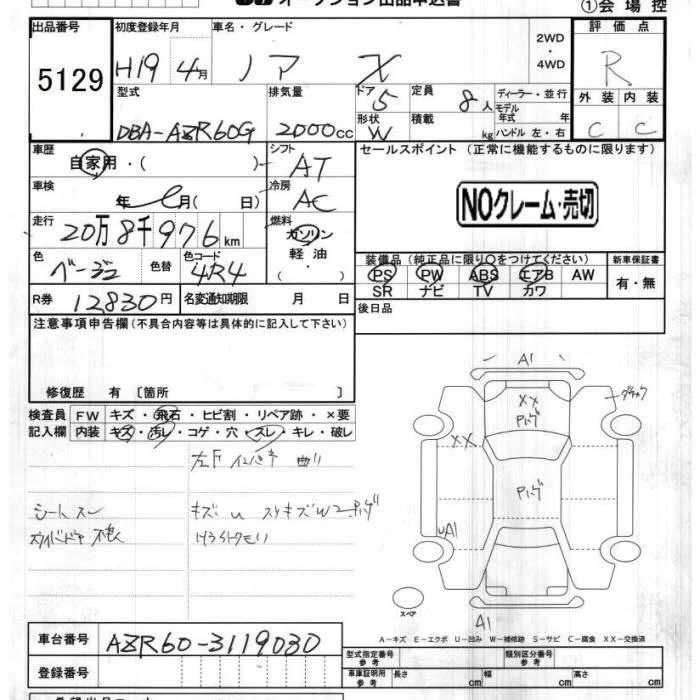 オークション出品申込書
①会場控
出品番号 初度登録年月 車名・グレード 評価点
5129 H19 4月 ノア X 2WD・4WD R
型式 排気量 ドア 5 定員 8人 ディーラー・並行 外装 内装
DBA-AZR60G 2000cc 形状 W 積載 kg モデル年式 年 ハンドル 左・右 C C
車歴 自家用・( ) シフト AT セールスポイント (正常に機能するものに限ります)
車検 年 月( 日) 冷房 AC NOクレーム・売切
走行 20万8千976km 燃料 ガソリン・軽油・
色 ベージュ 色替 色コード 4R4 装備品 (純正品に限り○をつけてください) 新車保証書
PS PW ABS エアB AW 有・無
SR ナビ TV カワ
R券 12830円 名変通知期限 月 日 後日品
注意事項申告欄(不具合内容等は具体的に記入して下さい)
修復歴 有 〔箇所 〕
検査員記入欄 FW キズ・飛石・ヒビ割・リペア跡・×要
内装 キズ・汚レ・コゲ・穴・スレ・キレ・破レ
A1
XX
Pハゲ
XX
Pハゲ
UA1
A1
スペア
シートスレ
A-キズ E-エクボ U-凹み W-補修跡 S-サビ C-腐食 XX-交換済
車台番号 AZR60-3119030
型式指定番号 参考 類別区分番号 参考
登録番号 車庫証明用 参考 長さ cm 幅 cm 高さ cm